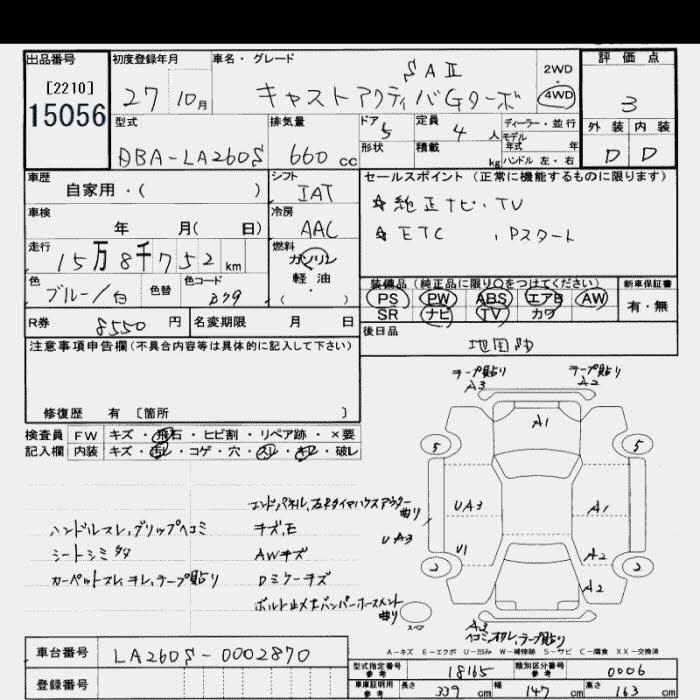 出品番号 初度登録年月 車名・グレード 評価点
[2210]
15056
27 10月
SAⅡ
キャストアクティバGターボ
2WD
・
4WD
3
外装 内装
D D
型式 排気量 ドア 定員 ディーラー・並行
DBA-LA260S 660 cc 5 4 人
モデル年式 年
形状 積載 kg ハンドル 左・右
車歴
自家用・( )
シフト
IAT
セールスポイント(正常に機能するものに限ります)
☆純正ナビ・TV
☆ETC 、Pスタート
車検
年 月( 日)
冷房
AAC
走行
15万8千752 km
燃料
ガソリン
軽油
・( )
色
ブルー/白 色替
色コード
B79
装備品(純正品に限り○をつけてください) 新車保証書
PS PW ABS エアB AW
SR ナビ TV カワ
有・無
R券 8550 円 名変期限 月 日
後日品
注意事項申告欄(不具合内容等は具体的に記入して下さい)
修復歴 有 [箇所 ]
検査員記入欄
FW キズ・飛石・ヒビ割・リペア跡・×要
内装 キズ・汚レ・コゲ・穴・スレ・キレ・破レ
テープ貼り
A3
テープ貼り
A2
A1
5 5
UA3 A1
UA3
U1 A2
2 2
A2
エンドパネル、左右タイヤハウスアウター
曲り
ハンドルスレ、グリップヘコミ
キズ、E
シートシミ
AWキズ
カーペットスレ、キレ、テープ貼り
Dミラーキズ
曲り
スペア
テープ貼り
A-キズ E-エクボ U-凹み W-補修跡 S-サビ C-腐食 XX-交換済
車台番号 LA260S-0002870
登録番号
型式指定番号
参考
18165
類別区分番号
参考
0006
車庫証明用
参考
長さ 339 cm 幅 147 cm 高さ 163 cm